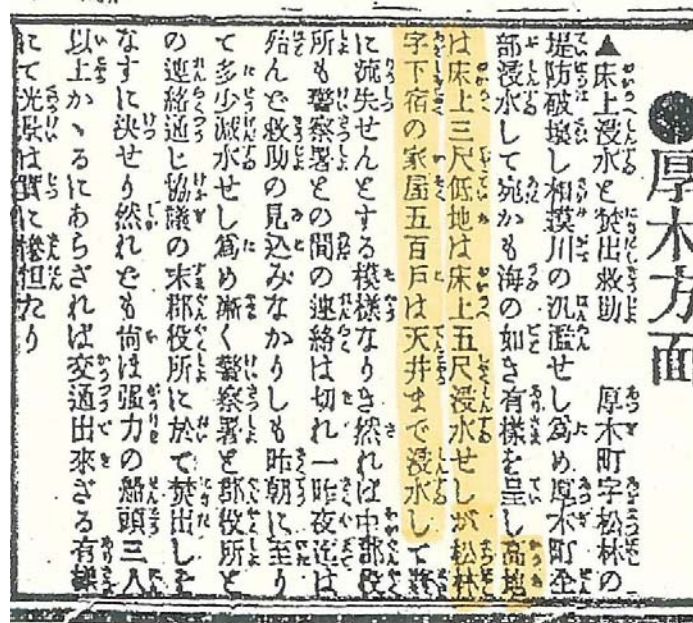 ●厚木方面
▲床上浸水と焚出救助　厚木町字松林の
堤防破壊し相摸川の氾濫せし為め厚木町全
部浸水して宛かも海の如き有様を呈し高地
は床上三尺低地は床上五尺浸水せしが松林
字下宿の家屋五百戸は天井まで浸水して將
に流失せんとする模様なりき然れば中郡役
所も警察署との間の連絡は切れ一昨夜迄は
殆んど救助の見込みなかりしも昨朝に至り
て多少減水せし為め漸く警察署と郡役所と
の連絡通じ協議の末郡役所に於て焚出しを
なすに決せり然れども尚ほ強力の船頭三人
以上かゝるにあらざれば交通出來ざる有様
にて光景は實に惨怛たり